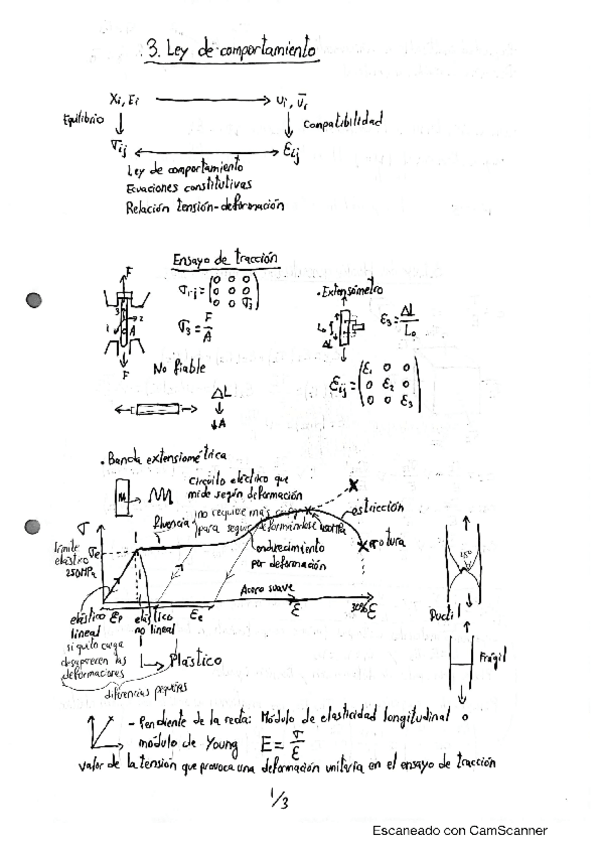 3. Ley de comportamiento
Xi, Ei → ui, ūi
Equilibrio
Compatibilidad
σij ↔ εij
Ley de comportamiento
Ecuaciones constitutivas
Relación tensión-deformación
Ensayo de tracción
F
σij = (0 0 0
0 0 0
0 0 σ3)
3
1
2
A
σ3 = F/A
F
No fiable
ΔL
↓A
• Extensómetro
L0
ΔL
ε3 = ΔL/L0
εij = (ε1 0 0
0 ε2 0
0 0 ε3)
• Banda extensiométrica
Circuito eléctrico que
mide según deformación
σ
fluencia
(no requiere más carga
para seguir deformándose
450MPa
estricción
rotura
límite
elástico
250MPa
σe
endurecimiento
por deformación
Acero suave
30% ε
ε
elástico
lineal
εp
elástico
no lineal
εe
si quito carga
desaparecen las
deformaciones
Plástico
diferencias pequeñas
45º
Ductil
Frágil
- Pendiente de la recta: Módulo de elasticidad longitudinal o
módulo de Young E = σ/ε
valor de la tensión que provoca una deformación unitaria en el ensayo de tracción
1/3
Escaneado con CamScanner